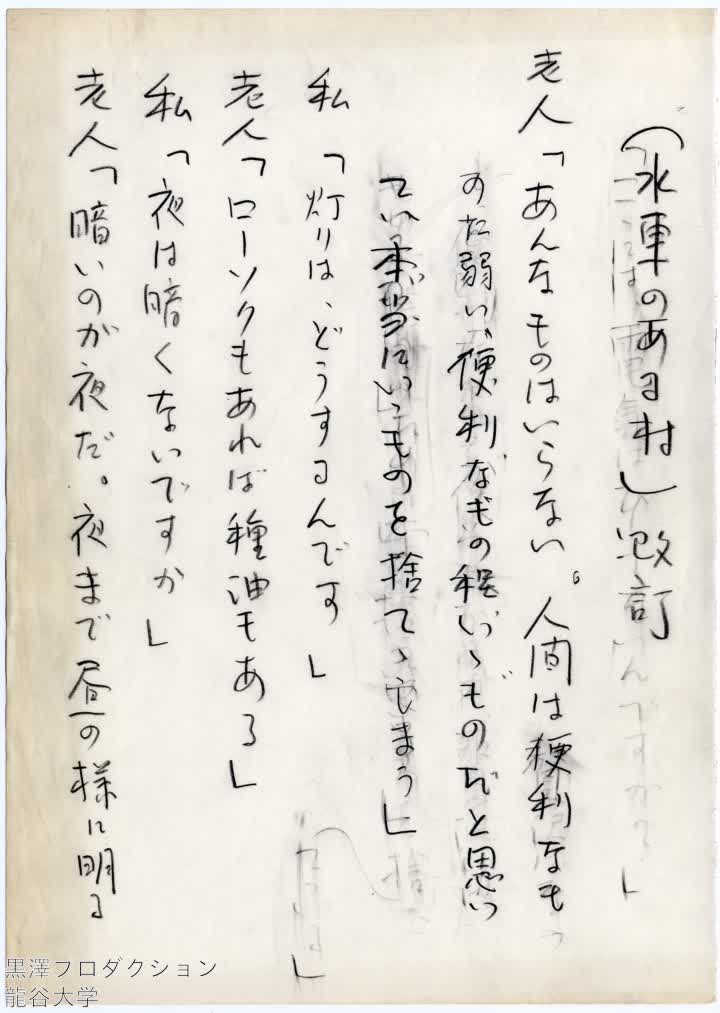 (水車のある村)改訂
老人「あんなものはいらない。人間は便利なも
のに弱い、便利なもの程いゝものだと思っ
てい本当にいゝものを捨てゝしまう」
私「灯りは、どうするんです」
老人「ローソクもあれば種油もある」
私「夜は暗くないですか」
老人「暗いのが夜だ。夜まで昼の様に明る
黒澤プロダクション
龍谷大学